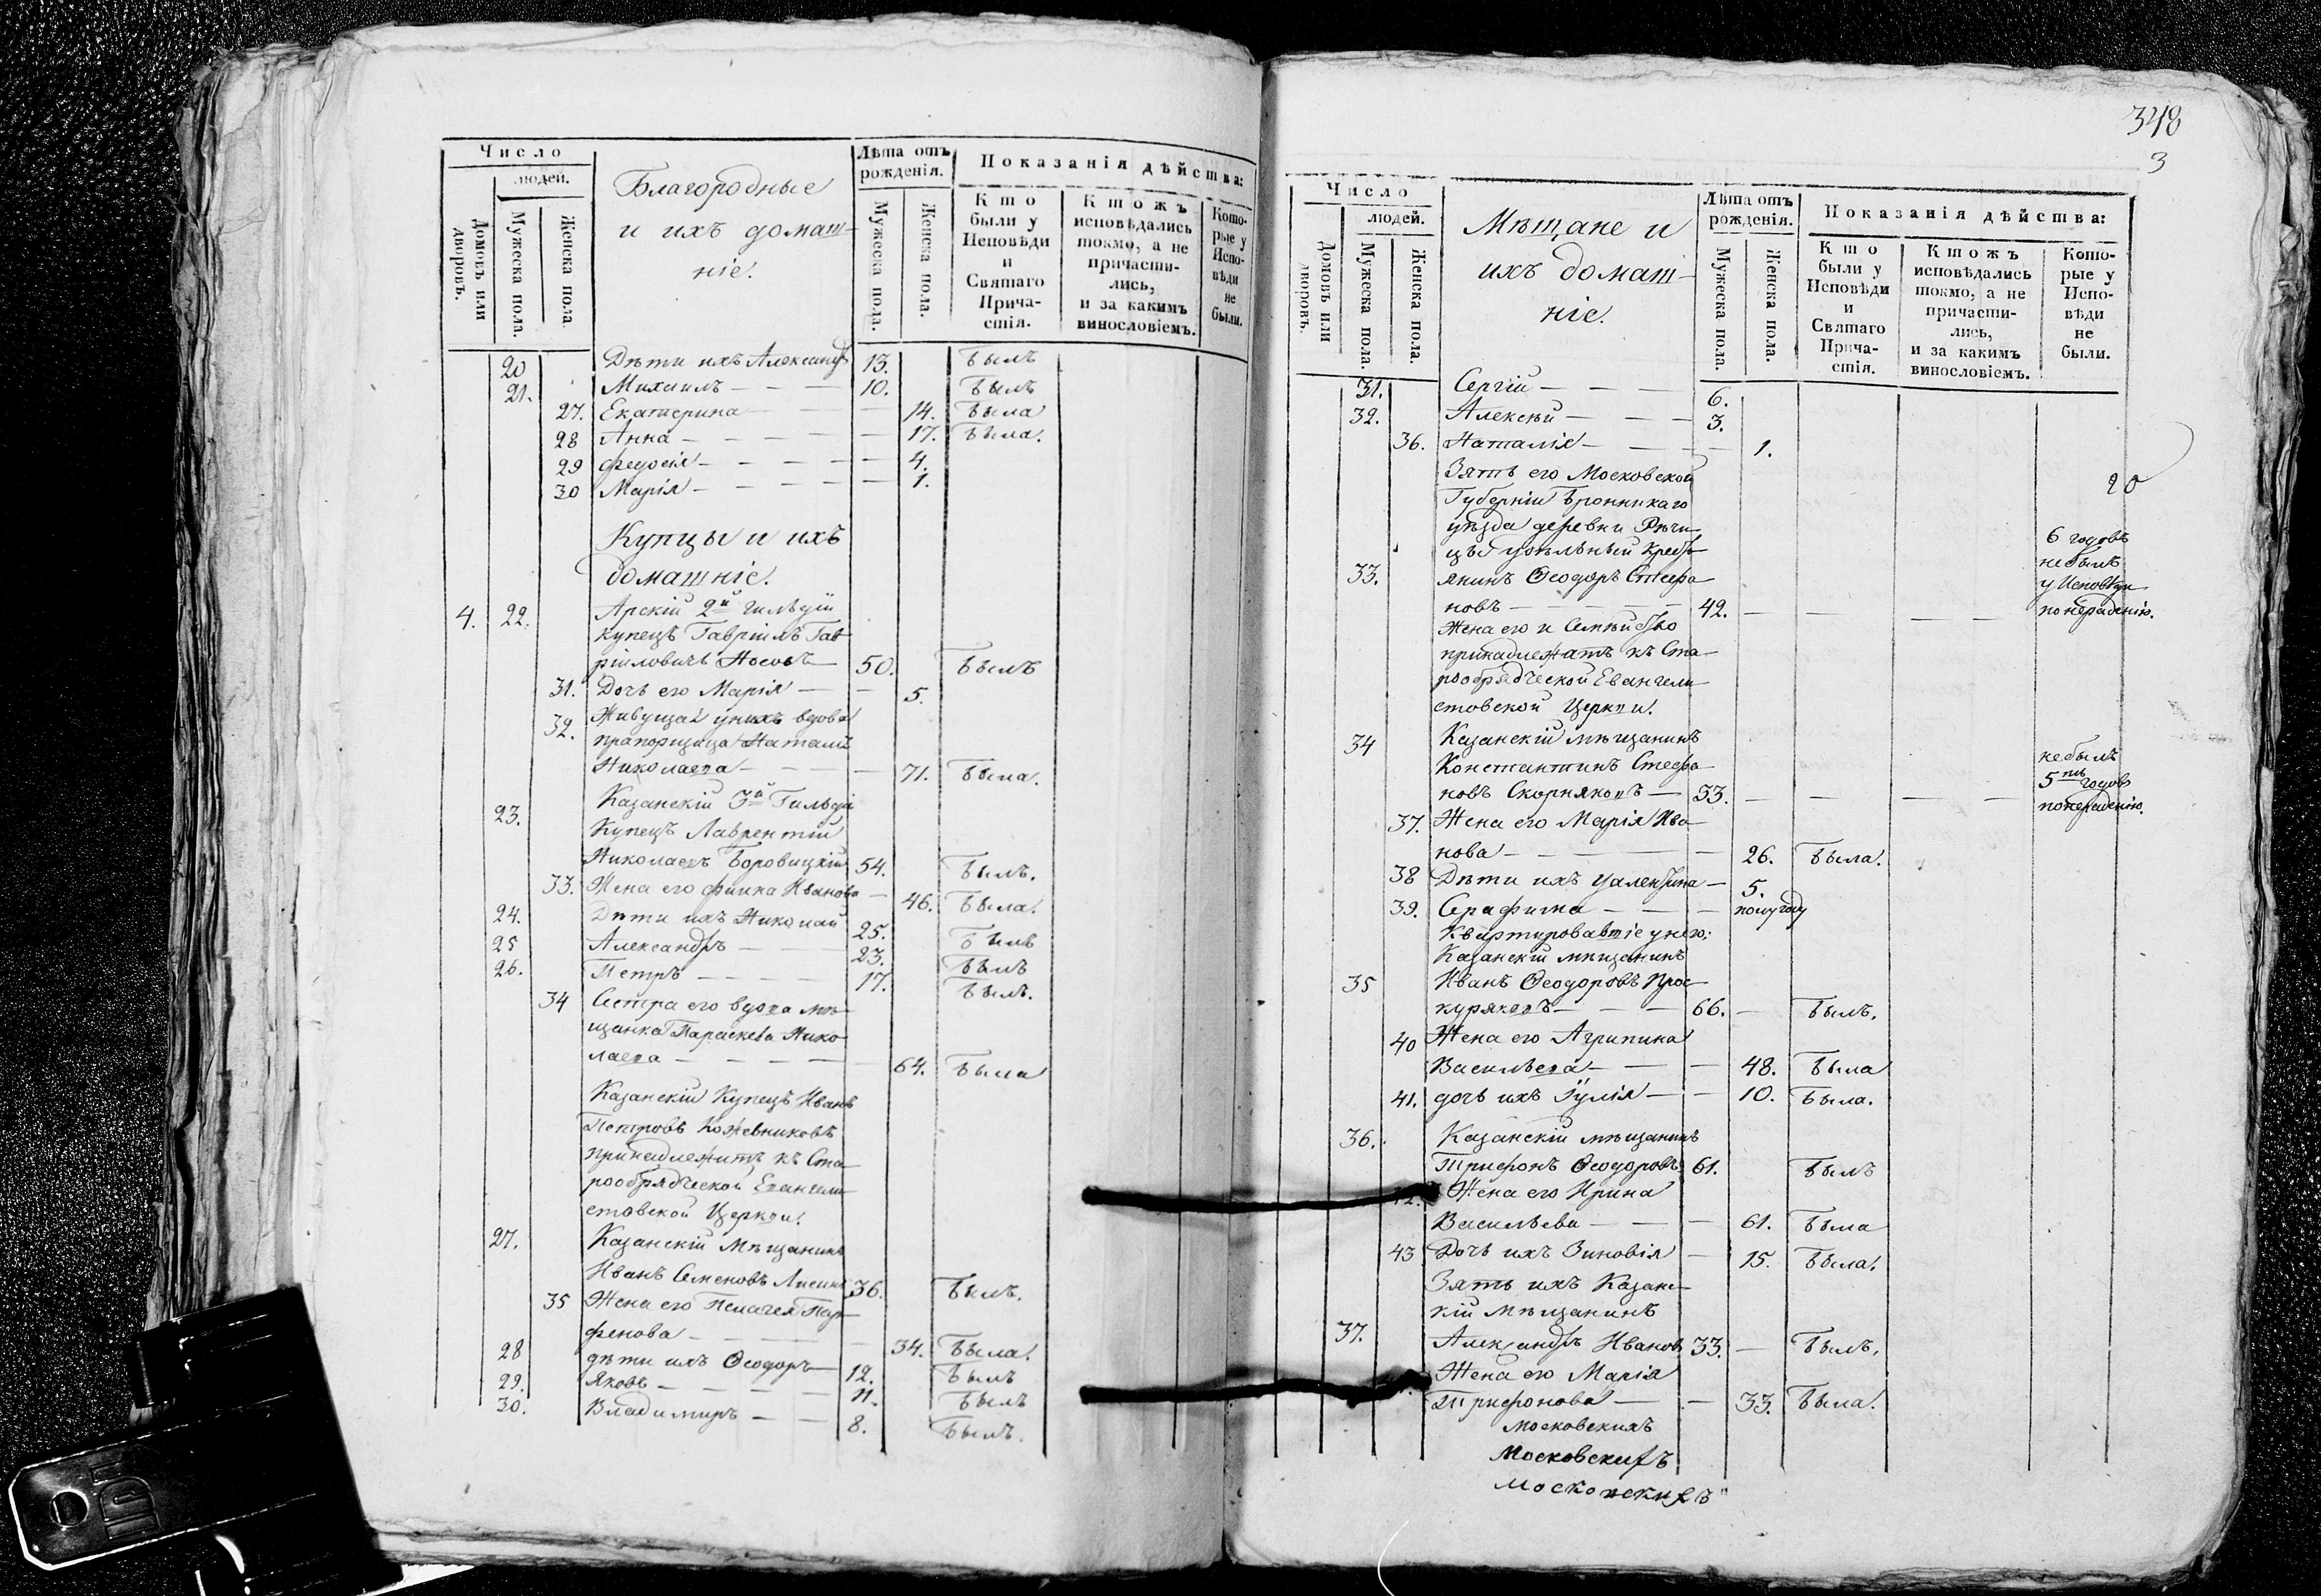 Число
людей.
Домовъ или дворовъ.
Мужеска пола.
Женска пола.
Благородные
и ихъ домаш-
ніе.
Лѣта отъ
рожденія.
Мужеска пола.
Женска пола.
Показанія дѣйства:
Кто были у Исповѣди и Святаго Прича-стія.
Ктожъ исповѣдались токмо, а не причасти-лись, и за какимъ винословіемъ.
Кото-рые у Испо-вѣди не были.
20 Дѣти ихъ Александръ 13. былъ
21. Михаилъ — — — 10. былъ
27. Екатерина — — — 14. была
28 Анна — — — — — 17. была.
29 Федосія — — — — — 4.
30 Марія — — — — — 1.
Купцы и ихъ
домашніе.
4. 22. Арскій 2й гильдіи
купецъ Гавріилъ Гав
ріиловичъ Носовъ — 50. былъ
31. Дочь его Марія — — 5.
32. Живущая у нихъ вдова
прапорщица Наталія
Николаева — — — — 71. была.
23. Казанскій 3й Гильдіи
Купецъ Лаврентій
Николаевъ Боровицкій 54. былъ.
33. Жена его Фиина Иванова — 46. была.
24. Дѣти ихъ Николай 25. былъ
25 Александръ — — 23. былъ
26. Петръ — — — 17. былъ.
34 Сестра его вдова мѣ
щанка Параскева Нико
лаева — — — — — 64. была
Казанскій Купецъ Иванъ
Петровъ Кожевниковъ
принадлежитъ къ Ста
рообрядческой Евангели
стовской Церкви.
27. Казанскій Мѣщанинъ
Иванъ Семеновъ Лисинъ 36. былъ.
35 Жена его Пелагея Пар
фенова — — — — 34. была.
28 дѣти ихъ Ѳеодоръ — 12. былъ
29. Яковъ — — — — 11. былъ
30. Владимиръ — — 8. былъ.
348
3
Число
людей.
Домовъ или дворовъ.
Мужеска пола.
Женска пола.
Мѣщане и
ихъ домаш-
ніе.
Лѣта отъ
рожденія.
Мужеска пола.
Женска пола.
Показанія дѣйства:
Кто были у Исповѣди и Святаго Прича-стія.
Ктожъ исповѣдались токмо, а не причасти-лись, и за какимъ винословіемъ.
Кото-рые у Испо-вѣди не были.
31. Сергій — — — — 6.
32. Алексѣй — — — 3.
36. Наталія — — — — 1.
Зять его Московской
Губерніи Бронникаго
уѣзда деревни Рѣчи
цы удѣльный кресть
33. янинъ Ѳеодоръ Стефа
новъ — — — — — 42. — — — —
6 годовъ
небылъ
у Исповѣди
понераденію.
Жена его и Семѣйство
принадлежатъ къ Ста
рообрядческой Евангели
стовской Церкви.
34 Казанскій мѣщанинъ
Константинъ Стефа
новъ Скорняковъ — 33. — — — —
небылъ
5ть годовъ
понераденію.
37. Жена его Марія Ива
нова — — — — — 26. была.
38 Дѣти ихъ Уалентина — 5.
39. Серафима — — — полугоду
Квартировавшіе у него:
Казанскій мѣщанинъ
35 Иванъ Ѳеодоровъ Прос
куряковъ — — — 66. — былъ.
40 Жена его Агрипина
Васильева — — — 48. была
41. дочь ихъ Іулія — — 10. была.
36. Казанскій мѣщанинъ
Трифонъ Ѳеодоровъ 61. былъ
Жена его Ирина
Васильева — — — 61. была
43 Дочь ихъ Зиновія — 15. была.
Зять ихъ Казанс
кій Мѣщанинъ
37. Александръ Ивановъ 33. — былъ.
Жена его Марія
Трифонова — — 33. была.
Московскихъ
Московскихъ
Московскихъ